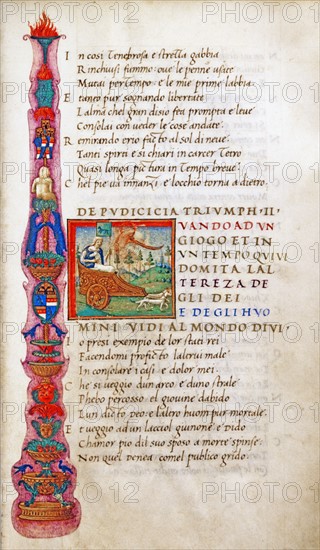 In cosi Tenebrosa e stretta gabbia
Rinchusi fummo: ove le penne usate
Mutai per tempo: e le mie prime labbia
E tanto pur sognando libertate
L alma che'l gran disio fea prompta e leve
Consolai con veder le cose andate
Remirando er'io fatto al sol di neve
Tanti spirti e si chiari in carcer Tetro
Quasi longa pictura in Tempo breve
Che'l pie va innanzi: e l'occhio torna a dietro.
DE PVDICICIA TRIVMPH· II·
VANDO AD VN
GIOGO ET IN
VN TEMPO QVIVI
DOMITA L AL
TEREZA DE
GLI DEI
E DEGLI HVO
MINI VIDI AL MONDO DIVI·
Io presi exempio de lor stati rei
Facendomi profitto l'altrui male
In consolare i casi e dolor mei
Che si veggio d'un arco e d'uno strale
Phebo percosso: e'l giovine d'abido
L'un ditto deo: e l'altro huom pur mortale.
E veggio ad un lacciol Giunone e dido
Ch'amor pio dil suo sposo a morte spinse
Non quel d'enea com'el publico grido.